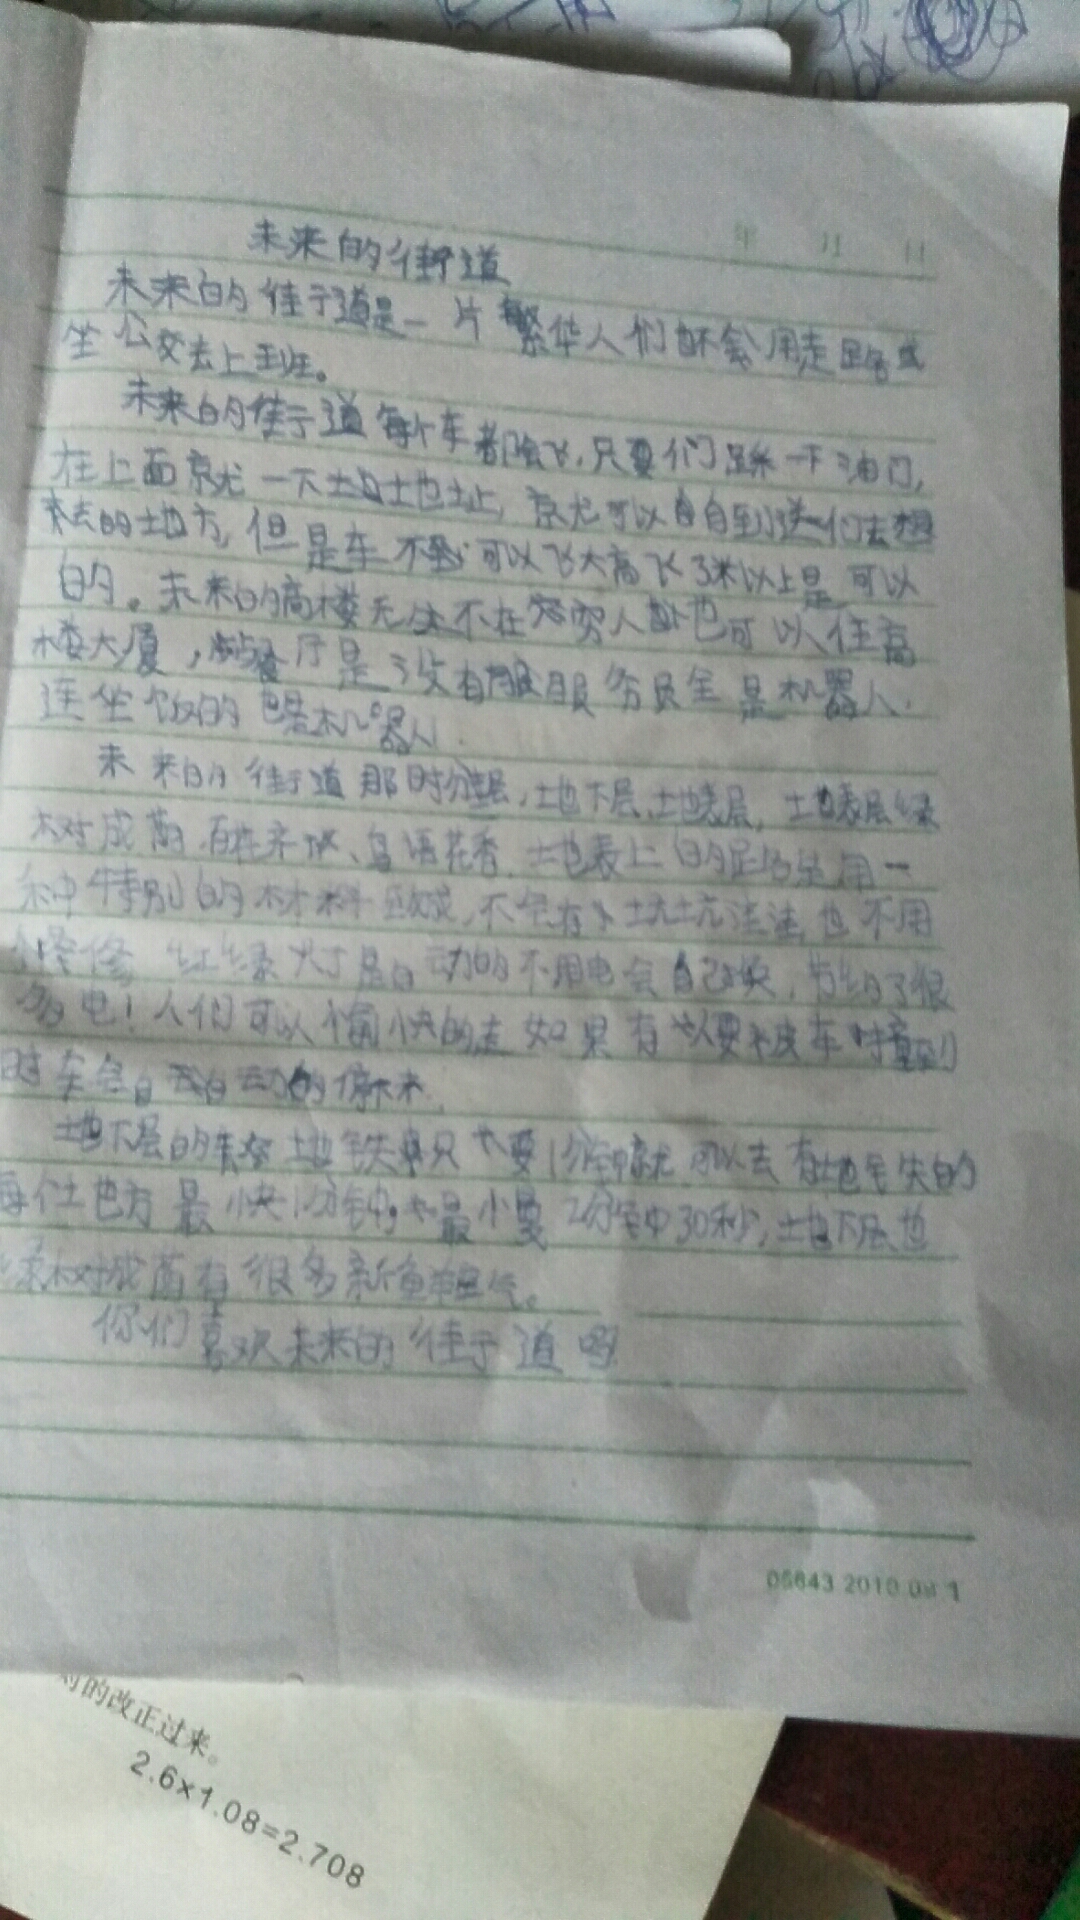 年 月 日
未来的街道
未来的街道是一片繁华人们都不会用走路或
坐公交去上班。
未来的街道每个车都会飞,只要们踩一下油门,
在上面就 一下地址,就可以自自到送们去想
去的地方,但是车不 可以飞太高飞3米以上是可以
的。未来的高楼无 不在 穷人 也可以住高
楼大厦, 餐厅是没有服服务员全是机器人.
连坐饭的都是机器人.
未来的街道那时分 层,地下层,地表层,地表层绿
树成荫,百 齐放、鸟语花香.地表上的路是用一
种特别的材料 成,不会有 坑坑洼洼,也不用
修 红绿灯是自动的不用电会自己换,节约了很
多电!人们可以愉快的走如果有 要被车撞到
时车会自 自动的停下来.
地下层的 地铁 只 要1分钟就可以去有地铁的
每个地方最快1分钟, 最小要2分钟30秒,地下层也
绿树成荫有很多新鱼 空气。
你们喜欢未来的街道吗
06643 2010.08 1
对的改正过来。
2.6×1.08=2.708